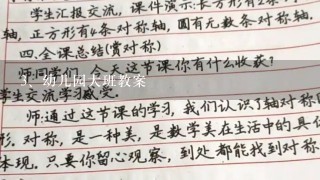 学生汇报交流，课件演示:长方形有2条
轴，正方形有4条对称轴，圆有无数条对称轴.
四.全课总结(赏对称)
师:同学们，今天这节课你有什么收获?
3. 幼儿园大班教案
学生交流学习感受.
师:通过这节课的学习，我们认识了轴对称
形.对称，是一种美，是数学美在生活中的具
体现.只要你留心观察，到处都能找到对称